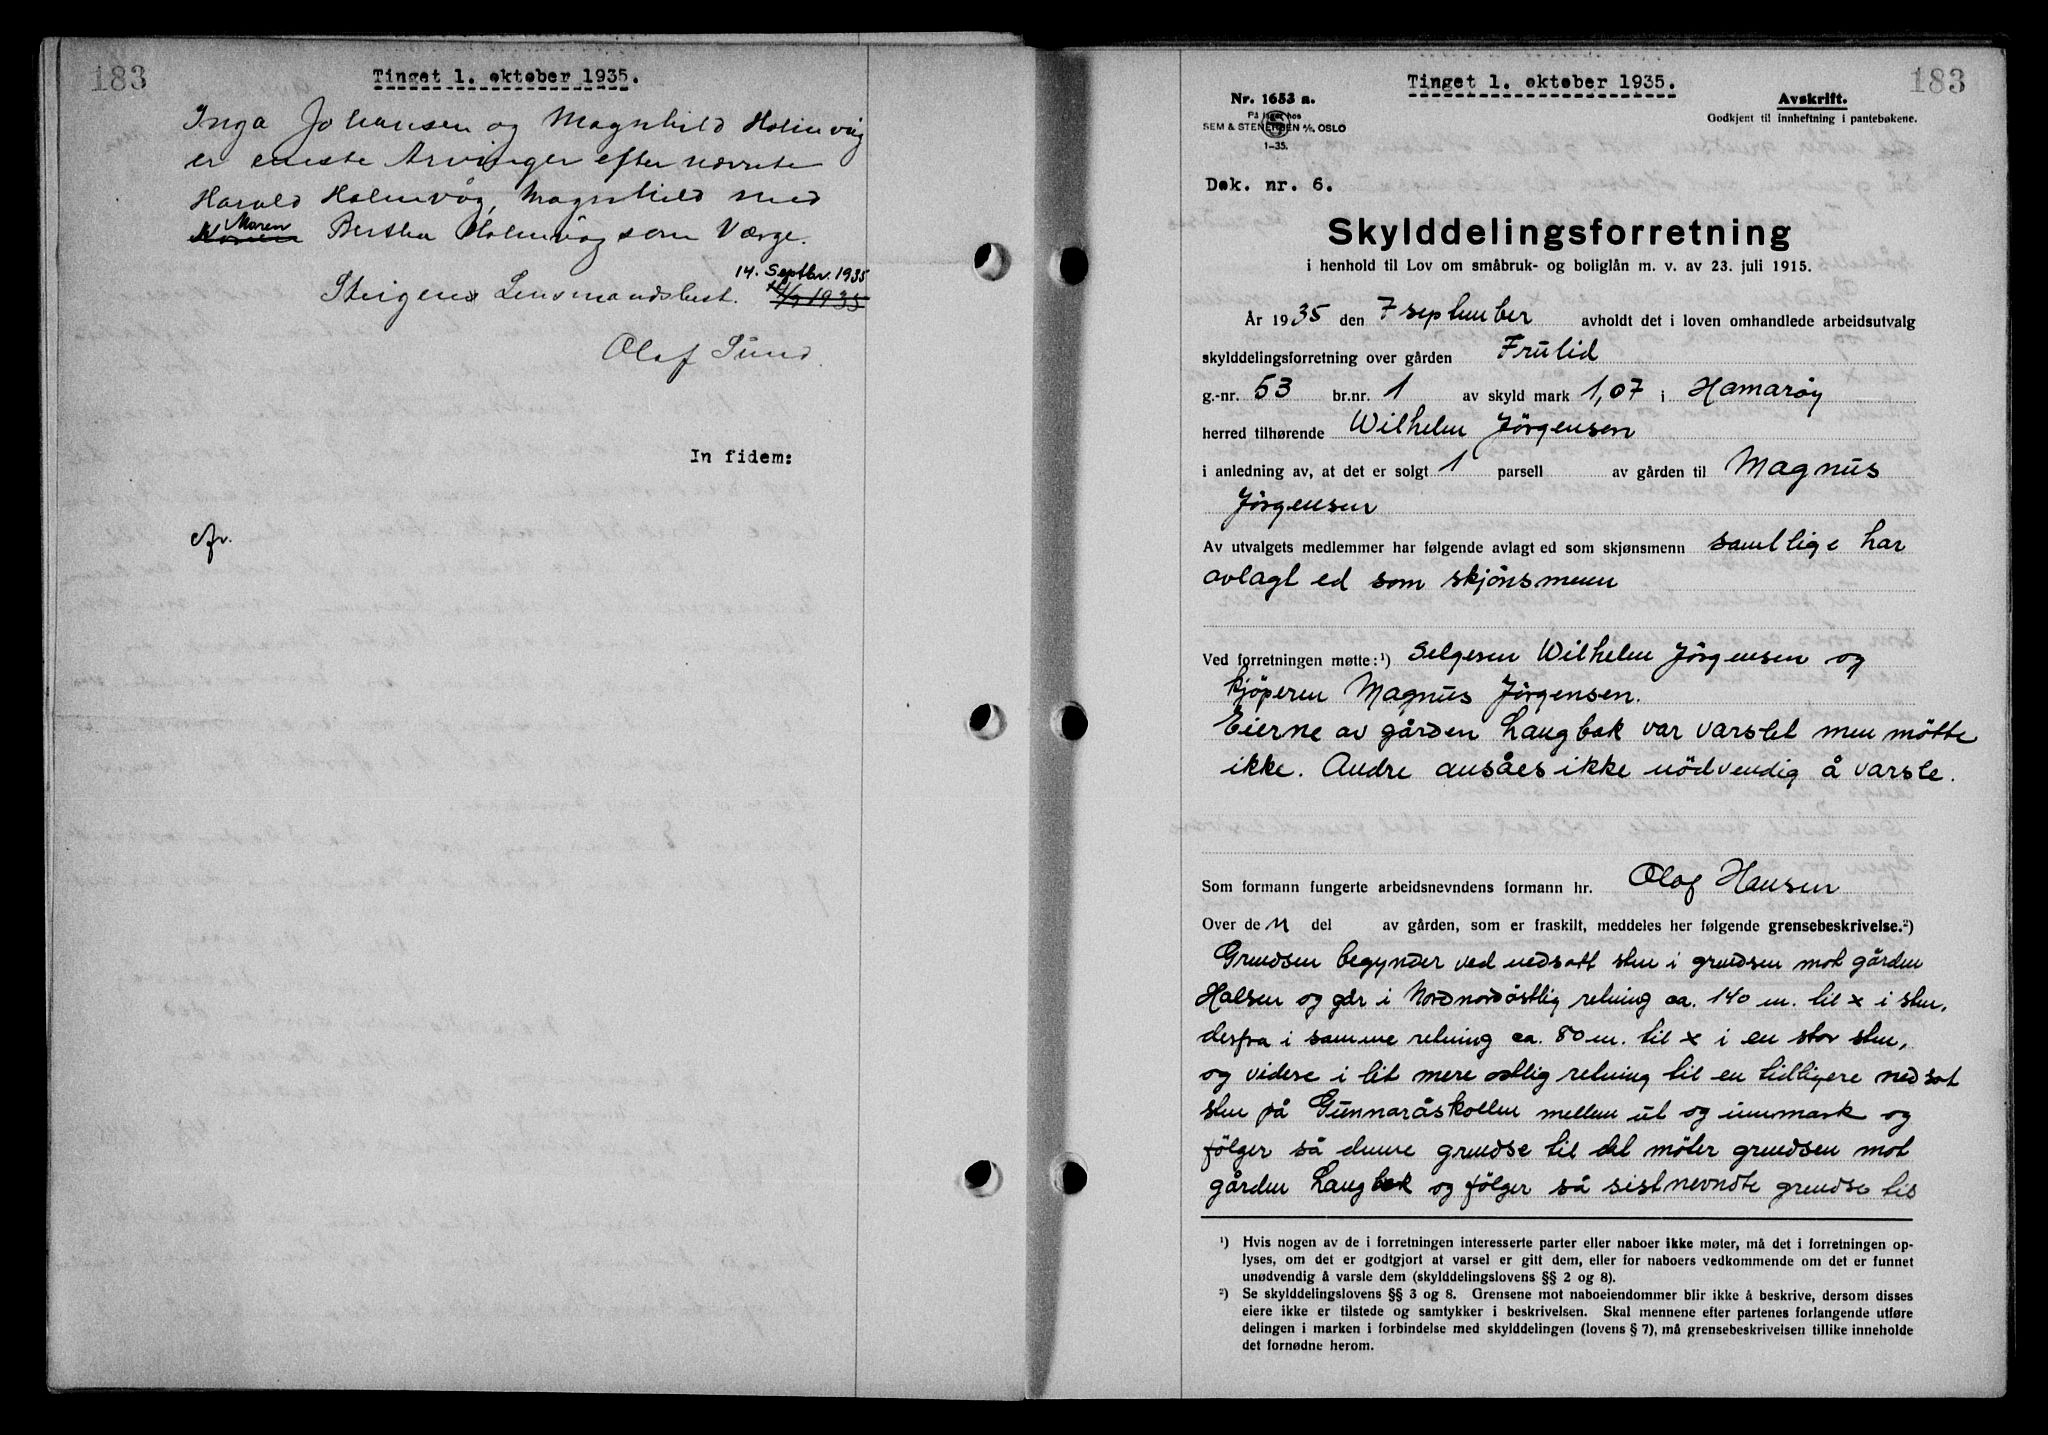 183
Tinget 1. oktober 1935.
Inga Johansen og Magnhild Holmvåg
er eneste Arvinger efter nevnte
Harald Holmvåg, Magnhild med
Maren
Bertha Holmvåg som Værge.
14. Septbr. 1935
Steigens Lensmandsbest.
Olaf Sund
In fidem:
Tinget 1. oktober 1935.
183
Nr. 1653 a.
På lager hos
SEM & STENERSEN A/S. OSLO
1-35.
Avskrift.
Godkjent til innheftning i pantebøkene.
Dok. nr. 6.
Skylddelingsforretning
i henhold til Lov om småbruk- og boliglån m. v. av 23. juli 1915.
År 1935 den 7 september avholdt det i loven omhandlede arbeidsutvalg
skylddelingsforretning over gården Frulid
g.-nr. 53 br.nr. 1 av skyld mark 1,07 i Hamarøy
herred tilhørende Wilhelm Jörgensen
i anledning av, at det er solgt 1 parsell av gården til Magnus
Jörgensen
Av utvalgets medlemmer har følgende avlagt ed som skjønsmenn samtlige har
avlagt ed som skjönsmenn
Ved forretningen møtte:¹) Selgeren Wilhelm Jörgensen og
kjöperen Magnus Jörgensen.
Eierne av gården Langbak var varslet men mötte
ikke. Andre ansåes ikke nödvendig å varsle.
Som formann fungerte arbeidsnevndens formann hr. Olaf Hansen
Over den del av gården, som er fraskilt, meddeles her følgende grensebeskrivelse.²)
Grendsen begynder ved nedsatt sten i grendsen mot gården
Halsen og går i Nordnordöstlig retning ca. 140 m. til x i sten,
derfra i samme retning ca. 80 m. til x i en stor sten,
og videre i lit mere ostlig retning til en tidligere nedsat
sten på Gunnaråskollen mellem ut og innmark og
fölger så denne grendse til det möter grendsen mot
gården Langbak og fölger så sistnevndte grendse til
¹) Hvis nogen av de i forretningen interesserte parter eller naboer ikke møter, må det i forretningen op-
lyses, om det er godtgjort at varsel er gitt dem, eller for naboers vedkommende om det er funnet
unødvendig å varsle dem (skylddelingslovens §§ 2 og 8).
²) Se skylddelingslovens §§ 3 og 8. Grensene mot naboeiendommer blir ikke å beskrive, dersom disses
eiere ikke er tilstede og samtykker i beskrivelsen. Skal mennene efter partenes forlangende utføre
delingen i marken i forbindelse med skylddelingen (lovens § 7), må grensebeskrivelsen tillike inneholde
det fornødne herom.